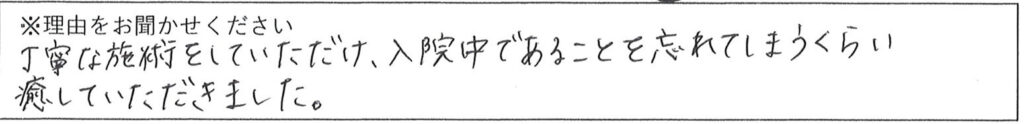 ※理由をお聞かせください
丁寧な施術をしていただけ、入院中であることを忘れてしまうくらい
癒していただきました。